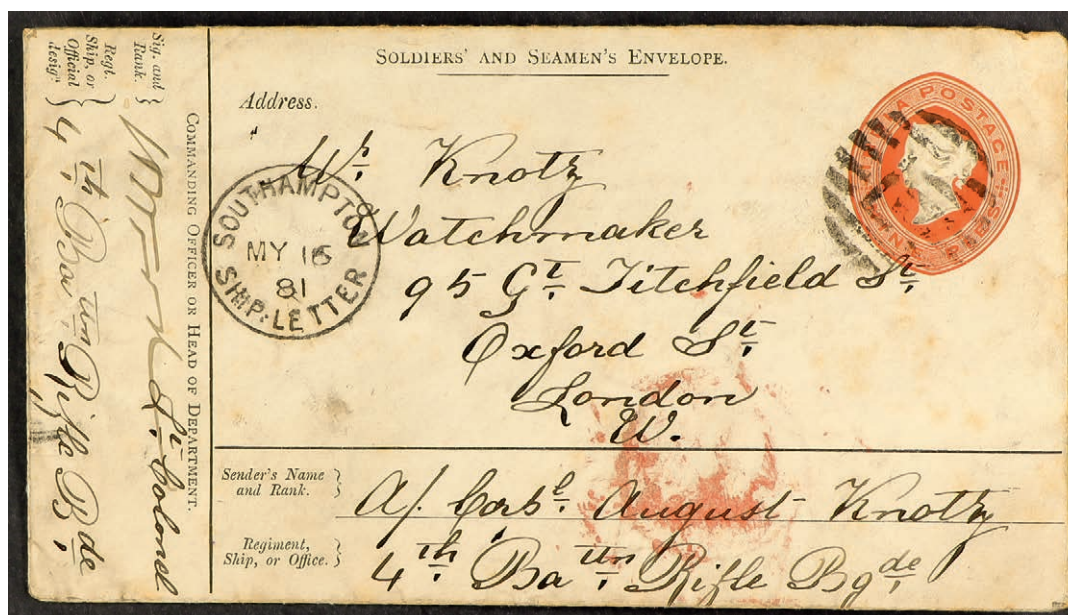 SOLDIERS' AND SEAMEN'S ENVELOPE.
Address.
Mr. Knotz
Watchmaker
95 Gt. Titchfield St.
Oxford St.
London
W.
SOUTHAMPTON
MY 16
81
SHIP-LETTER
POSTAGE
Sender's Name and Rank.
A/. Corpl. August Knotz
Regiment, Ship, or Office.
4th Battn Rifle Bgde.
COMMANDING OFFICER OR HEAD OF DEPARTMENT.
Sig. and Rank.
Lt. Colonel
Regt. Ship, or Official desig.
4th Battn Rifle Bde.